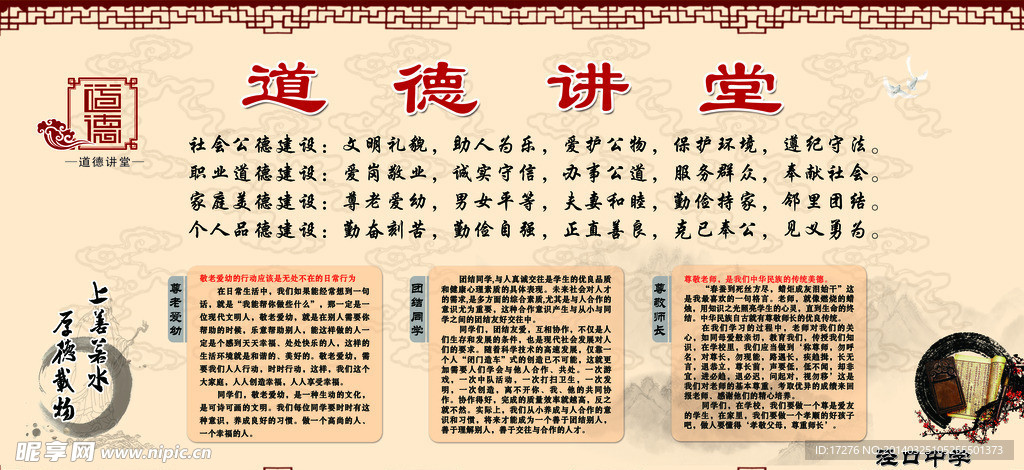 道德讲堂
道德
道德讲堂
社会公德建设：文明礼貌，助人为乐，爱护公物，保护环境，遵纪守法。
职业道德建设：爱岗敬业，诚实守信，办事公道，服务群众，奉献社会。
家庭美德建设：尊老爱幼，男女平等，夫妻和睦，勤俭持家，邻里团结。
个人品德建设：勤奋刻苦，勤俭自强，正直善良，克己奉公，见义勇为。
上善若水
厚德载物
尊老爱幼
敬老爱幼的行动应该是无处不在的日常行为
在日常生活中，我们如果能经常想到一句
话，就是“我能帮你做些什么”，那一定是一
位现代文明人，敬老爱幼，就是在别人需要你
帮助的时候，乐意帮助别人，能这样做的人一
定是个感到天天幸福、处处快乐的人，这样的
生活环境就是和谐的、美好的。敬老爱幼，需
要我们人人行动，时时行动，这样，我们这个
大家庭，人人创造幸福，人人享受幸福。
同学们，敬老爱幼，是一种生动的文化，
是可诗可画的文明。我们每位同学要时时有这
种意识，养成良好的习惯，做一个高尚的人、
一个幸福的人。
团结同学
团结同学，与人真诚交往是学生的优良品质
和健康心理素质的具体表现。未来社会对人才
的需求，是多方面的综合素质，尤其是与人合作的
意识尤为重要，这种合作意识产生与从小与同
学之间的团结友好交往中。
同学们，团结友爱，互相协作，不仅是人
们生存和发展的条件，也是现代社会发展对人
们的要求。随着科学技术的高速发展，仅靠一
个人“闭门造车”式的创造已不可能，这就更
加需要人们学会与他人合作、共处。一次游
戏，一次中队活动，一次打扫卫生，一次发
明，一次创造，离不开你、我、他的共同协
作。协作得好，完成的质量效率就越高，反之
就不然。实际上，我们从小养成与人合作的意
识和习惯，将来才能成为一个善于团结别人，
善于理解别人，善于交往与合作的人才。
尊敬师长
尊敬老师，是我们中华民族的传统美德。
“春蚕到死丝方尽，蜡炬成灰泪始干”这
是我最喜欢的一句格言。老师，就像燃烧的蜡
烛，用知识之光照亮学生的心灵，直到生命的终
结。中华民族自古就有尊敬师长的优良传统。
在我们学习的过程中，老师对我们的关
心，如同母爱般亲切，教育我们，传授我们知
识，在学校里，我们应当做到‘称尊师，勿呼
名，对尊长，勿现能，路遇长，疾趋揖，长无
言，退恭立，尊长前，声要低，低不闻，却非
宜，进必趋，退必迟，问起对，视勿移’这是
我们对老师的基本尊重，考取优异的成绩来回
报老师，感谢他们的精心培养。
同学们，在学校，我们要做一个尊师爱友
的学生，在家里，我们要做一个孝顺的好孩子
吧，做人要懂得‘孝敬父母，尊重师长’。
泾口中学
昵享网 www.nipic.cn